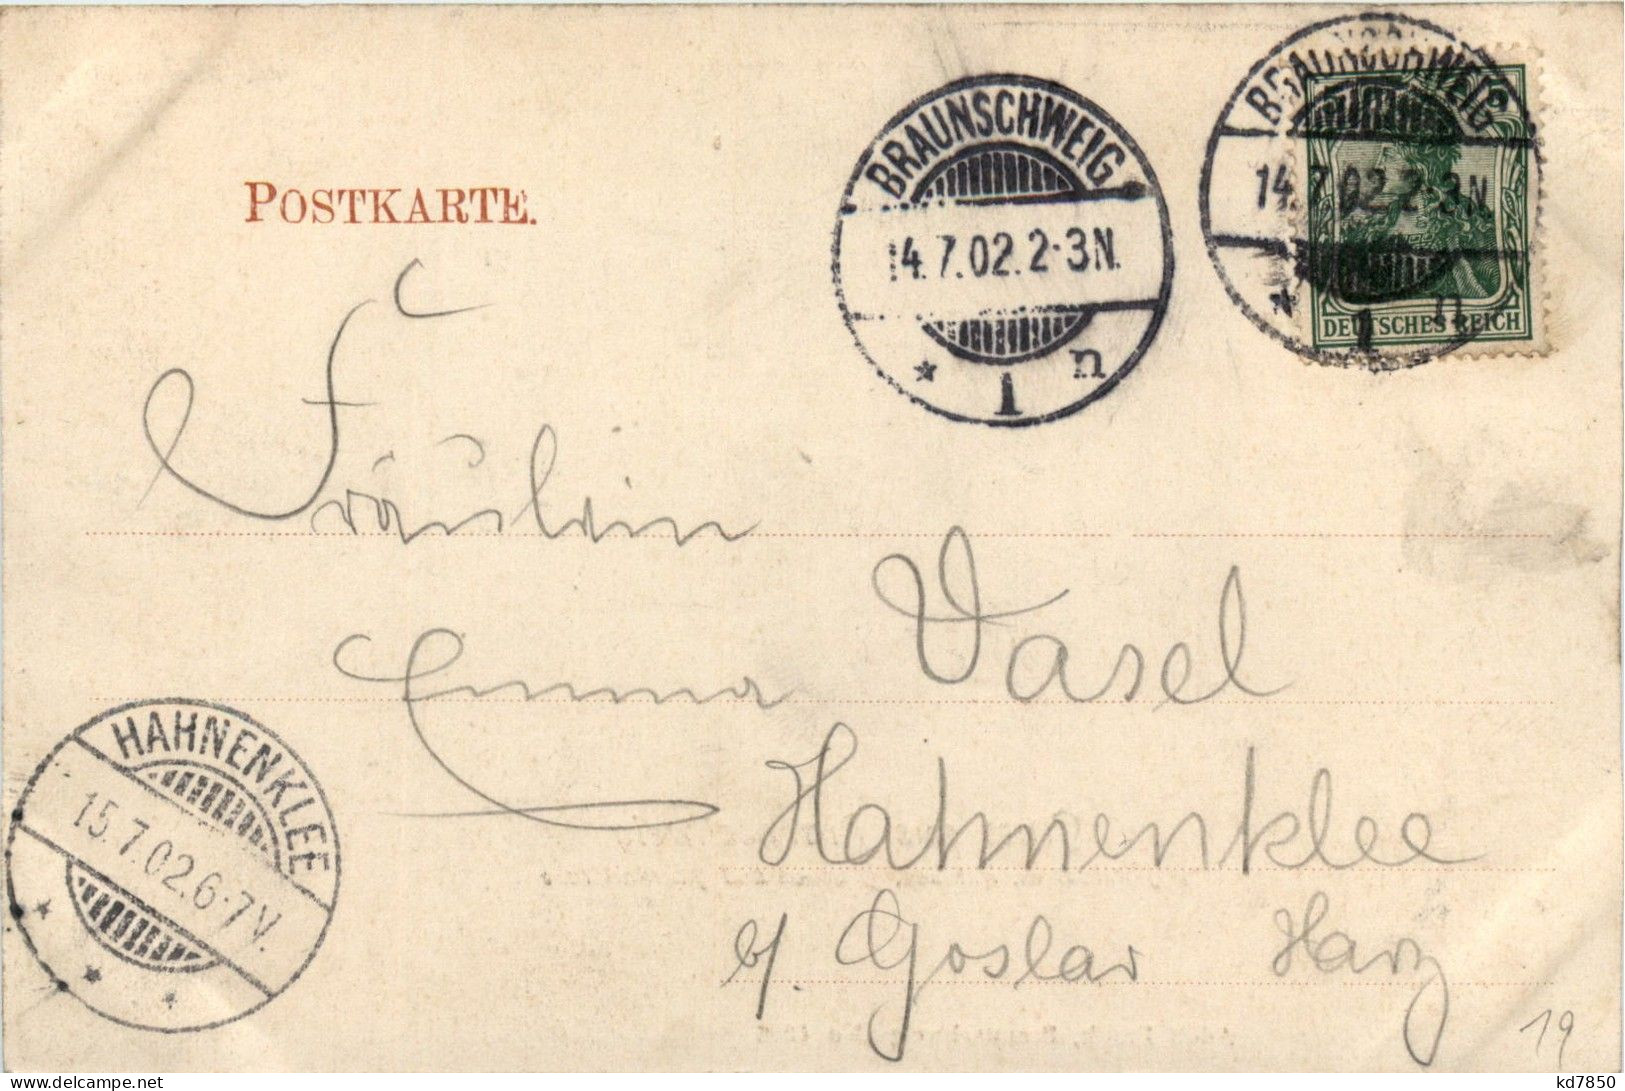 POSTKARTE.
BRAUNSCHWEIG
14.7.02.2-3N.
* 1 n
BRAUNSCHWEIG
14.7.02.2-3N.
* 1 n
DEUTSCHES REICH
Fräulein
Emma Vasel
Hahnenklee
b/ Goslar Harz
HAHNENKLEE
15.7.02.6-7V.
19
kd7850